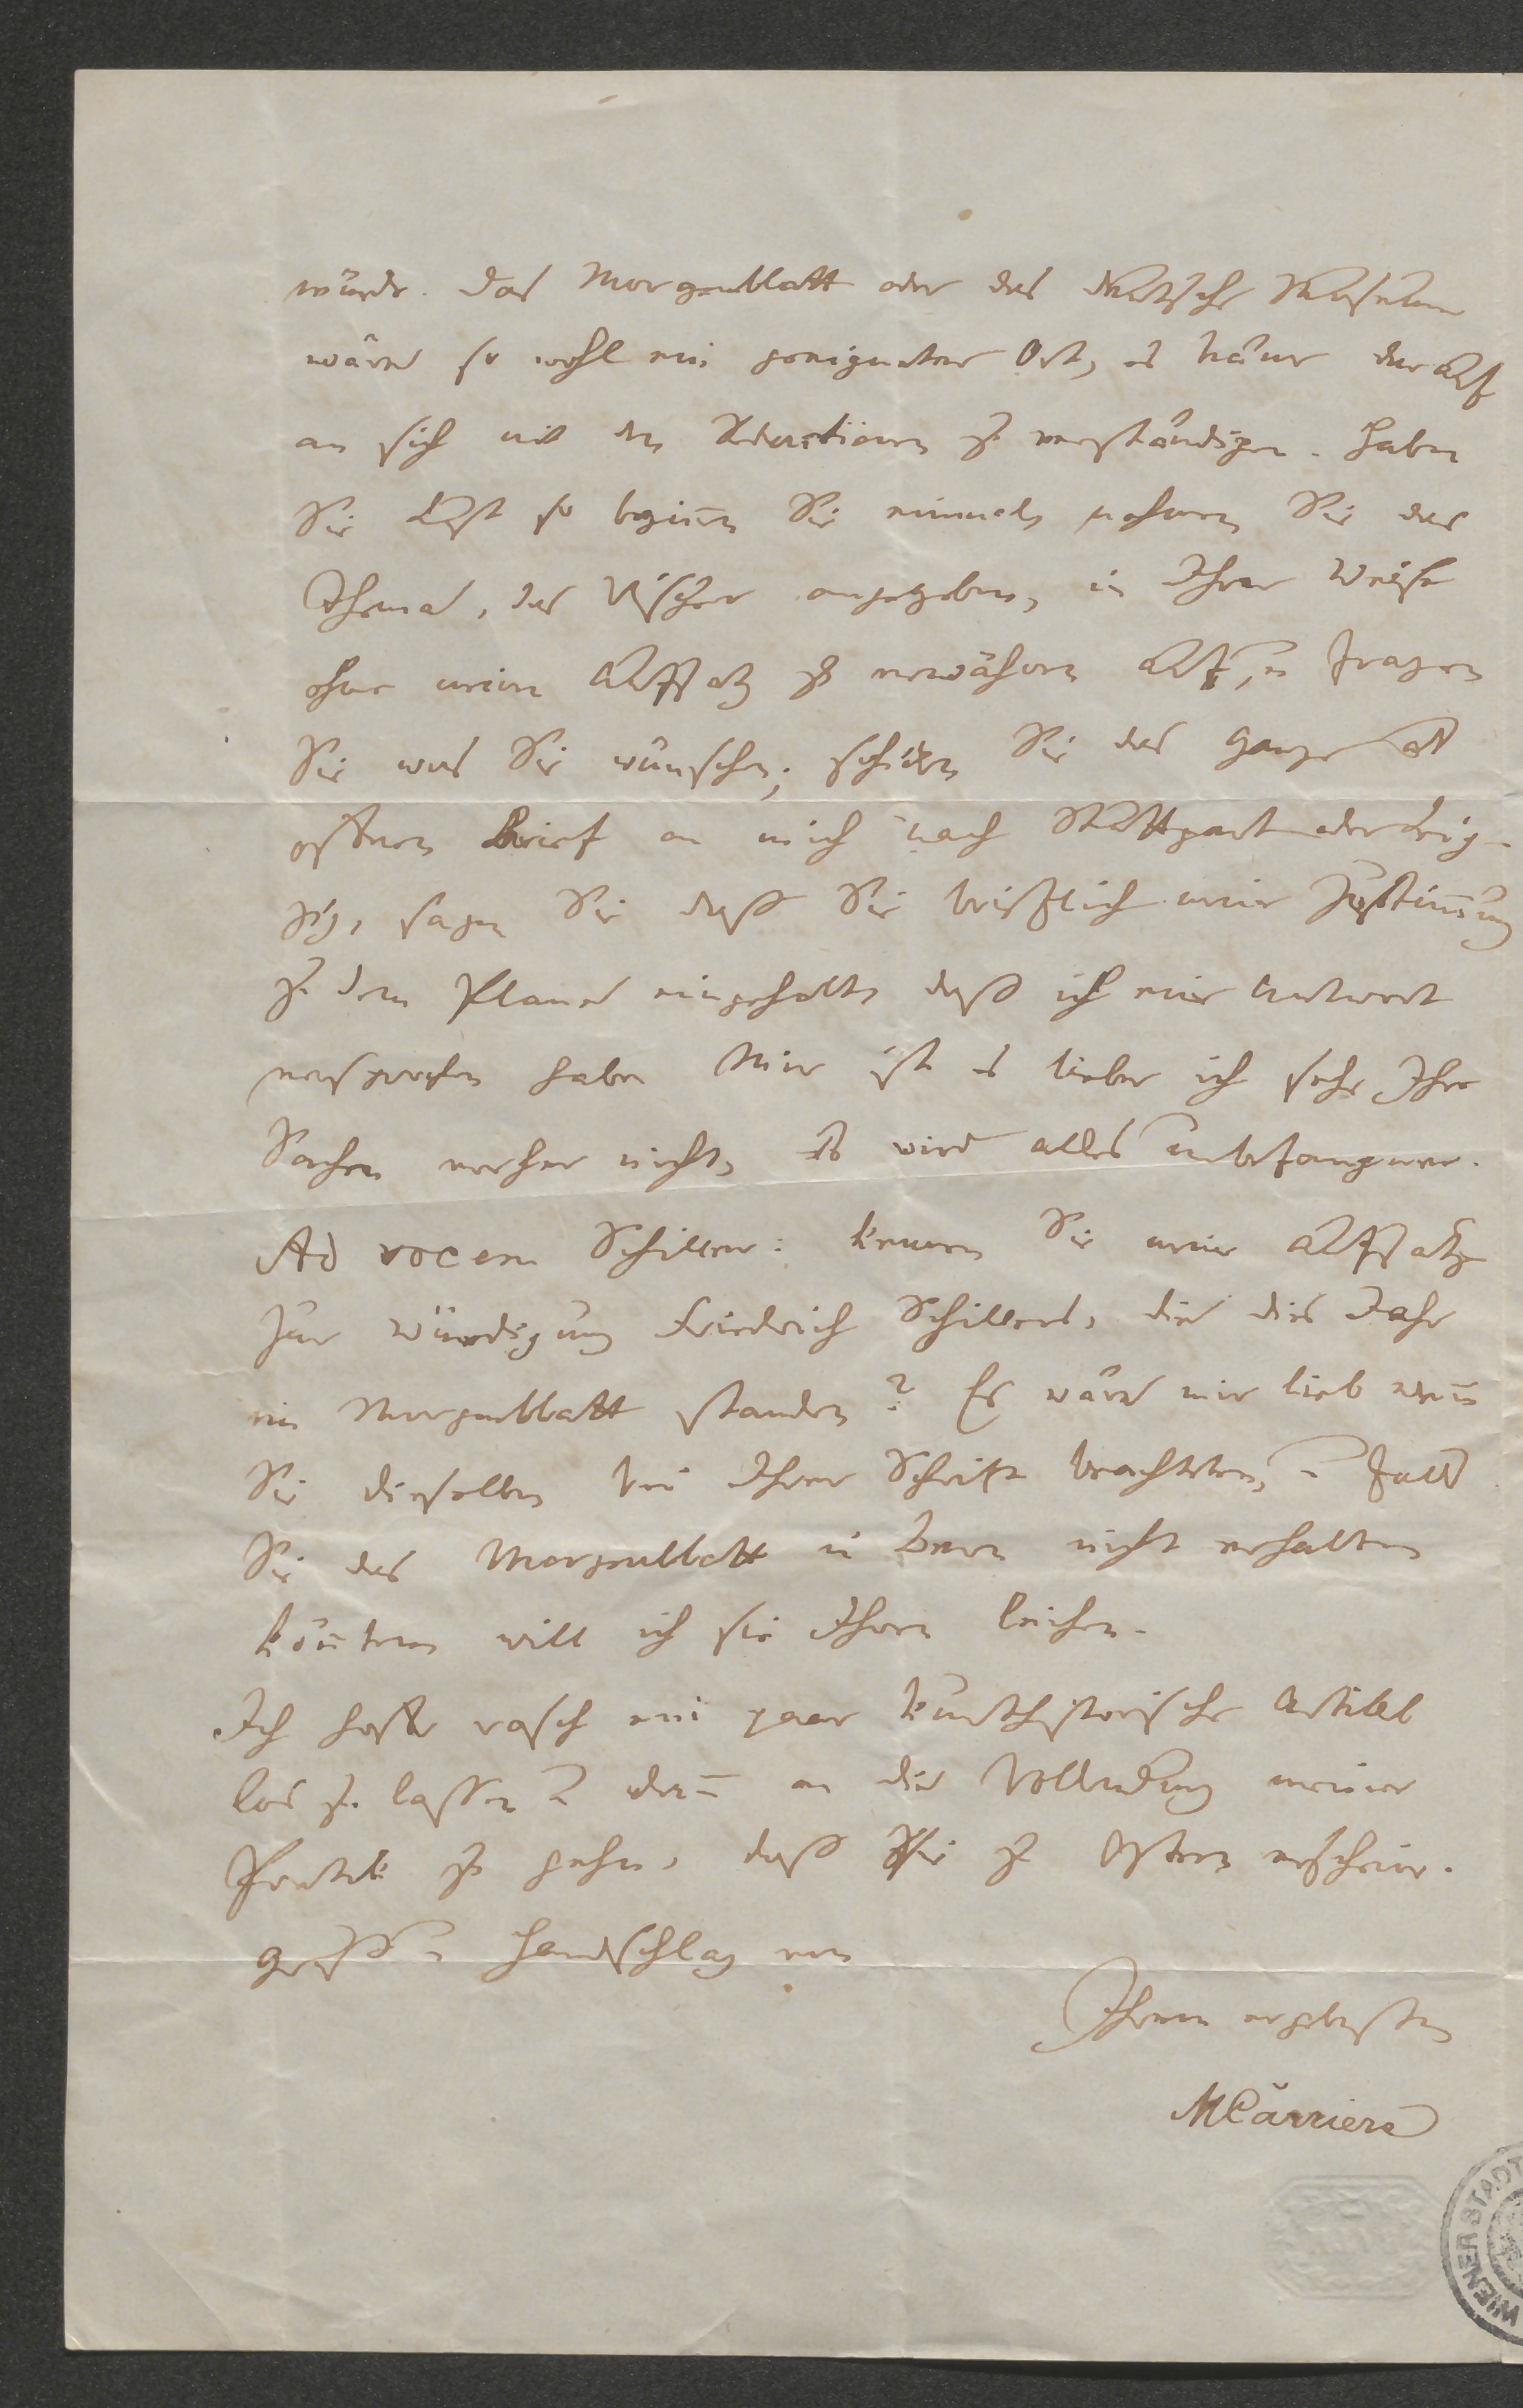 würde. Das Morgenblatt oder das deutsche Museum
wären so wohl ein geeigneter Ort, es käme darauf
an sich mit den Redactionen zu verständigen. Haben
Sie Lust so beginnen Sie einmal, nehmen Sie das
Thema, das Vischer angegeben, in Ihrer Weise
ohne meinen Aufsatz zu erwähnen auf, u fragen
Sie was Sie wünschen; schicken Sie das Ganze als
offnen Brief an mich nach Stuttgart oder Leip-
zig, sagen Sie daß Sie brieflich meine Zustimmung
zu dem Plane eingeholt, daß ich eine Antwort
versprochen habe. Mir ist es lieber ich sehe Ihre
Sachen vorher nicht, es wird alles unbefangner.
Ad vocem Schiller: kennen Sie meine Aufsätze
zur Würdigung Friedrich Schillers, die dies Jahr
im Morgenblatt standen? Es wäre mir lieb wenn
Sie dieselben bei Ihrer Schrift beachteten, u falls
Sie das Morgenblatt in Bern nicht erhalten
könnten will ich sie Ihnen leihen.
Ich hoffe rasch ein paar kunsthistorische Artikel
los zu lassen u dann an die Vollendung meiner
Poetik zu gehn, daß sie zu Ostern erscheine.
Gruß u Handschlag von
Ihrem ergebensten
MCarriere
WIENER STADT